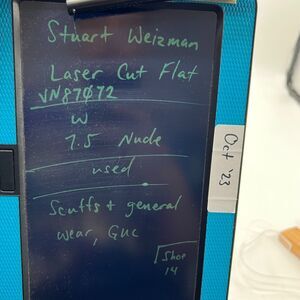 Stuart Weizman
Laser Cut Flat
VN87072
W
7.5 Nude
used
Scuffs + general
wear, GUC
Shoe
14
Oct '23